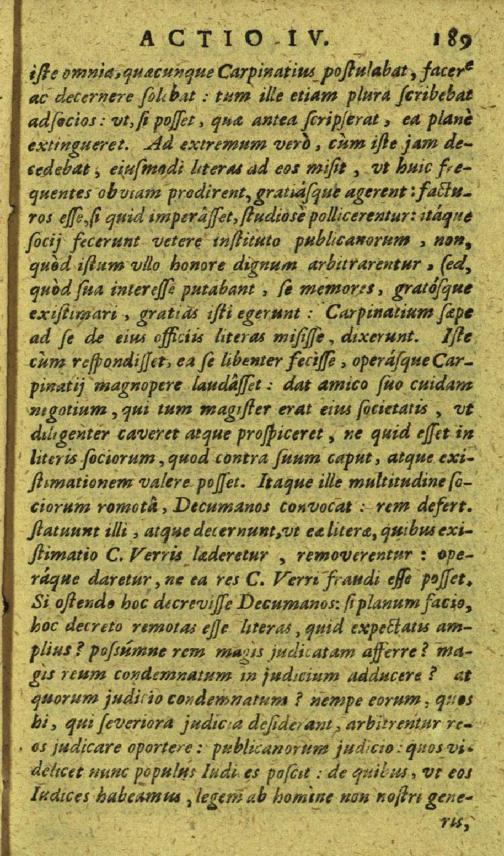 ACTIO IV. 189
iſte omnia, quæcunque Carpinatius poſtulabat, facere
ac decernere ſolebat : tum ille etiam plura ſcribebat
adſocios : vt, ſi poſſet, quæ antea ſcripſerat, ea planè
extingueret. Ad extremum verò, cùm iſte jam de-
cedebat, eiuſmodi literas ad eos miſit, vt huic fre-
quentes obviam prodirent, gratiáſque agerent : factu-
ros eſſe, ſi quid imperâſſet, ſtudioſè pollicerentur: itáque
ſocij fecerunt vetere inſtituto publicanorum, non,
quòd iſtum vllo honore dignum arbitrarentur, ſed,
quòd ſua intereſſe putabant, ſe memores, gratóſque
exiſtimari, gratias iſti egerunt : Carpinatium ſæpe
ad ſe de eius officiis literas miſiſſe, dixerunt. Iſte
cùm reſpondiſſet, ea ſe libenter feciſſe, operáſque Car-
pinatij magnopere laudâſſet : dat amico ſuo cuidam
negotium, qui tum magiſter erat eius ſocietatis, vt
diligenter caveret atque proſpiceret, ne quid eſſet in
literis ſociorum, quod contra ſuum caput, atque exi-
ſtimationem valere poſſet. Itaque ille multitudine ſo-
ciorum romotâ, Decumanos convocat : rem defert.
ſtatuunt illi, atque decernunt, vt eæ literæ, quibus exi-
ſtimatio C. Verris læderetur, removerentur : ope-
ráque daretur, ne ea res C. Verri fraudi eſſe poſſet.
Si oſtendo hoc decreviſſe Decumanos: ſi planum facio,
hoc decreto remotas eſſe literas, quid expectatis am-
plius ? poſſúmne rem magis judicatam afferre ? ma-
gis reum condemnatum in judicium adducere ? at
quorum judicio condemnatum ? nempe eorum, quos
hi, qui ſeveriora judicia deſiderant, arbitrentur re-
os judicare oportere : publicanorum judicio : quos vi-
delicet nunc populus Iudices poſcit : de quibus, vt eos
Iudices habeamus, legem ab homine non noſtri gene-
ris,